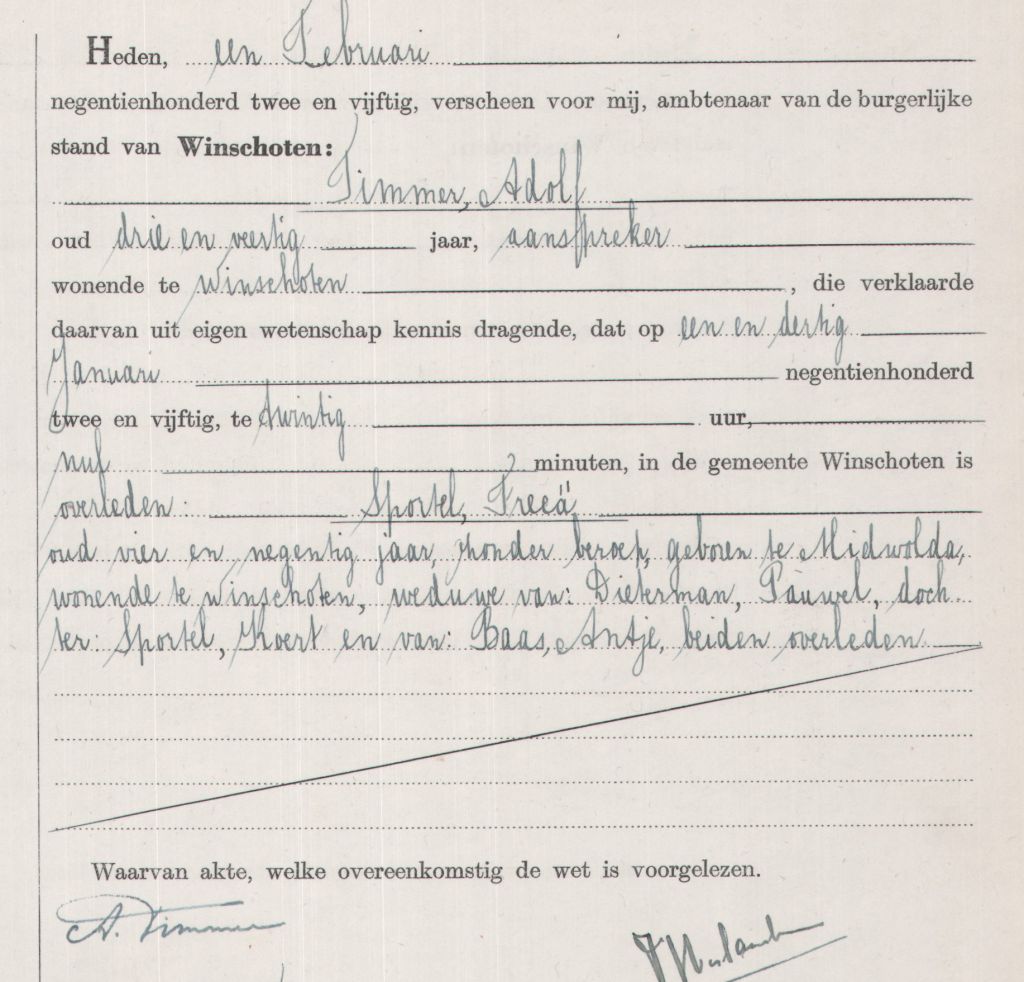 Heden, een Februari
negentienhonderd twee en vijftig, verscheen voor mij, ambtenaar van de burgerlijke
stand van Winschoten:
Timmer, Adolf
oud drie en veertig jaar, aanspreker
wonende te Winschoten, die verklaarde
daarvan uit eigen wetenschap kennis dragende, dat op een en dertig
Januari negentienhonderd
twee en vijftig, te twintig uur,
nul minuten, in de gemeente Winschoten is
overleden: Sportel, Freeä
oud vier en negentig jaar, zonder beroep, geboren te Midwolda,
wonende te Winschoten, weduwe van: Dieterman, Pauwel, doch
ter: Sportel, Koert en van: Baas, Antje, beiden overleden
Waarvan akte, welke overeenkomstig de wet is voorgelezen.
A. Timmer